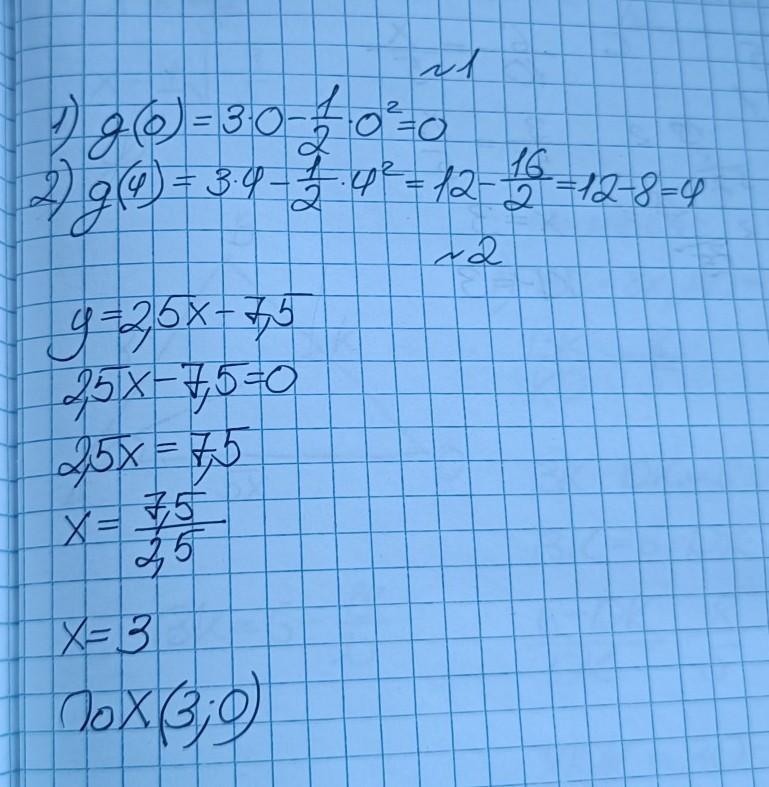 ~1
1) g(0) = 3·0 - 1/2·0² = 0
2) g(4) = 3·4 - 1/2·4² = 12 - 16/2 = 12 - 8 = 4
~2
y = 2,5x - 7,5
2,5x - 7,5 = 0
2,5x = 7,5
x = 7,5/2,5
x = 3
∩OX(3;0)